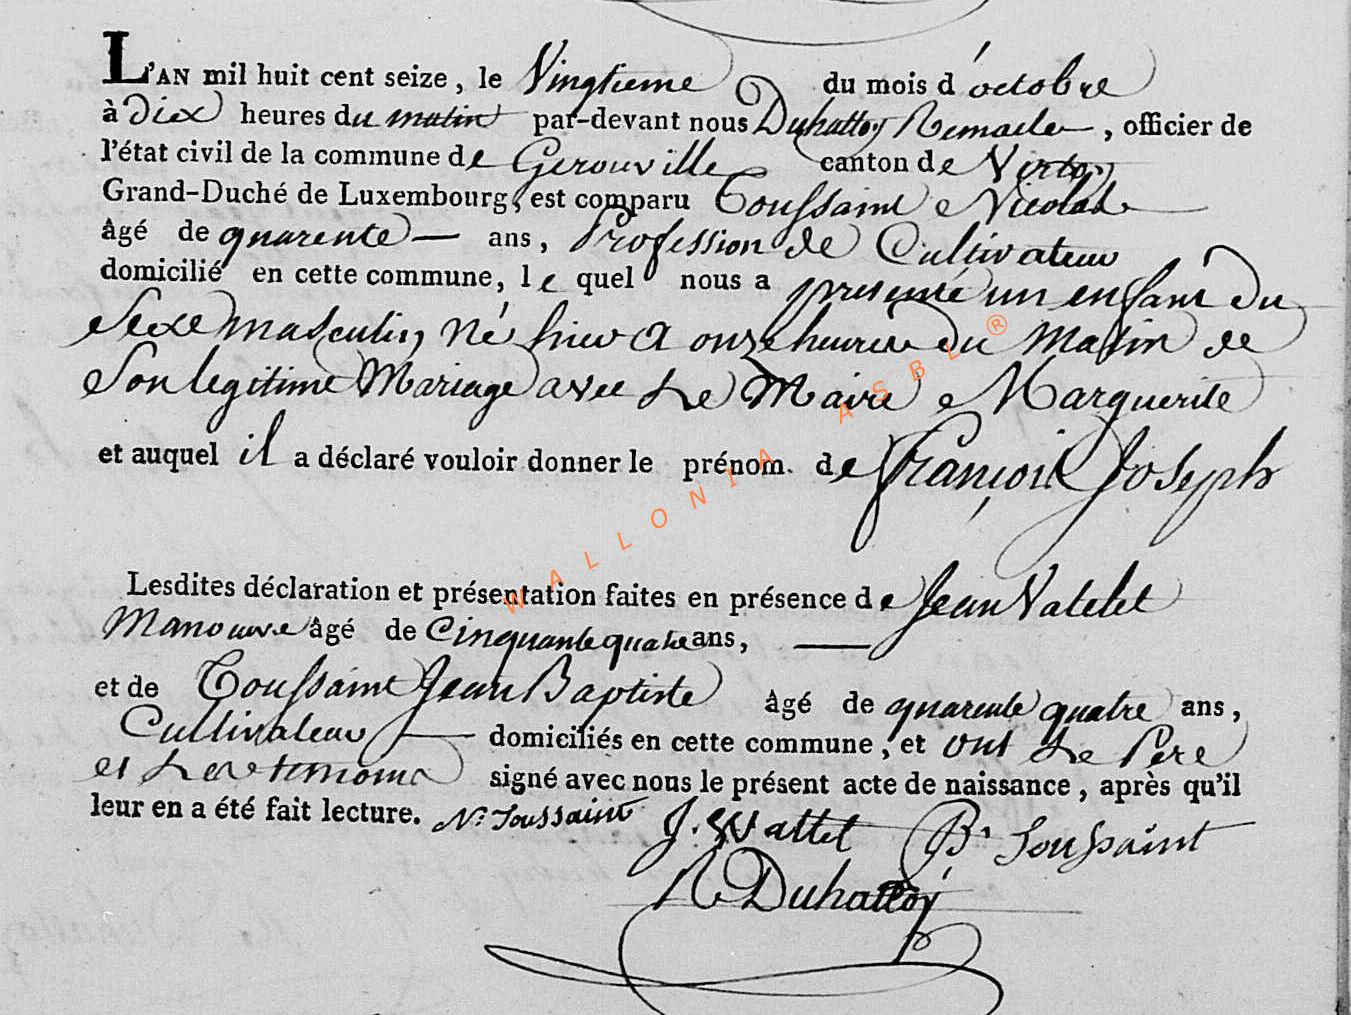 L'AN mil huit cent seize, le Vingtieme du mois d'octobre
à Dix heures du matin par-devant nous Duhattoy Remacle, officier de
l'état civil de la commune de Gerouville canton de Virton
Grand-Duché de Luxembourg, est comparu Toussaint Nicolas
âgé de quarente ans, Profession de Cultivateur
domicilié en cette commune, le quel nous a presenté un enfant du
Sexe masculin né hier a onze heures du Matin de
Son legitime Mariage avec Le Maire Marguerite
et auquel il a déclaré vouloir donner le prénom de françois Joseph
Lesdites déclaration et présentation faites en présence de Jean Vatelet
Manouvre âgé de Cinquante quatre ans,
et de Toussaint Jean Baptiste âgé de quarente quatre ans,
Cultivateur domiciliés en cette commune, et ont Le Pere
et Les temoins signé avec nous le présent acte de naissance, après qu'il
leur en a été fait lecture. N. Toussaint J. Wattlet B. Toussaint
R Duhattoy
WALLONIA ASBL ®